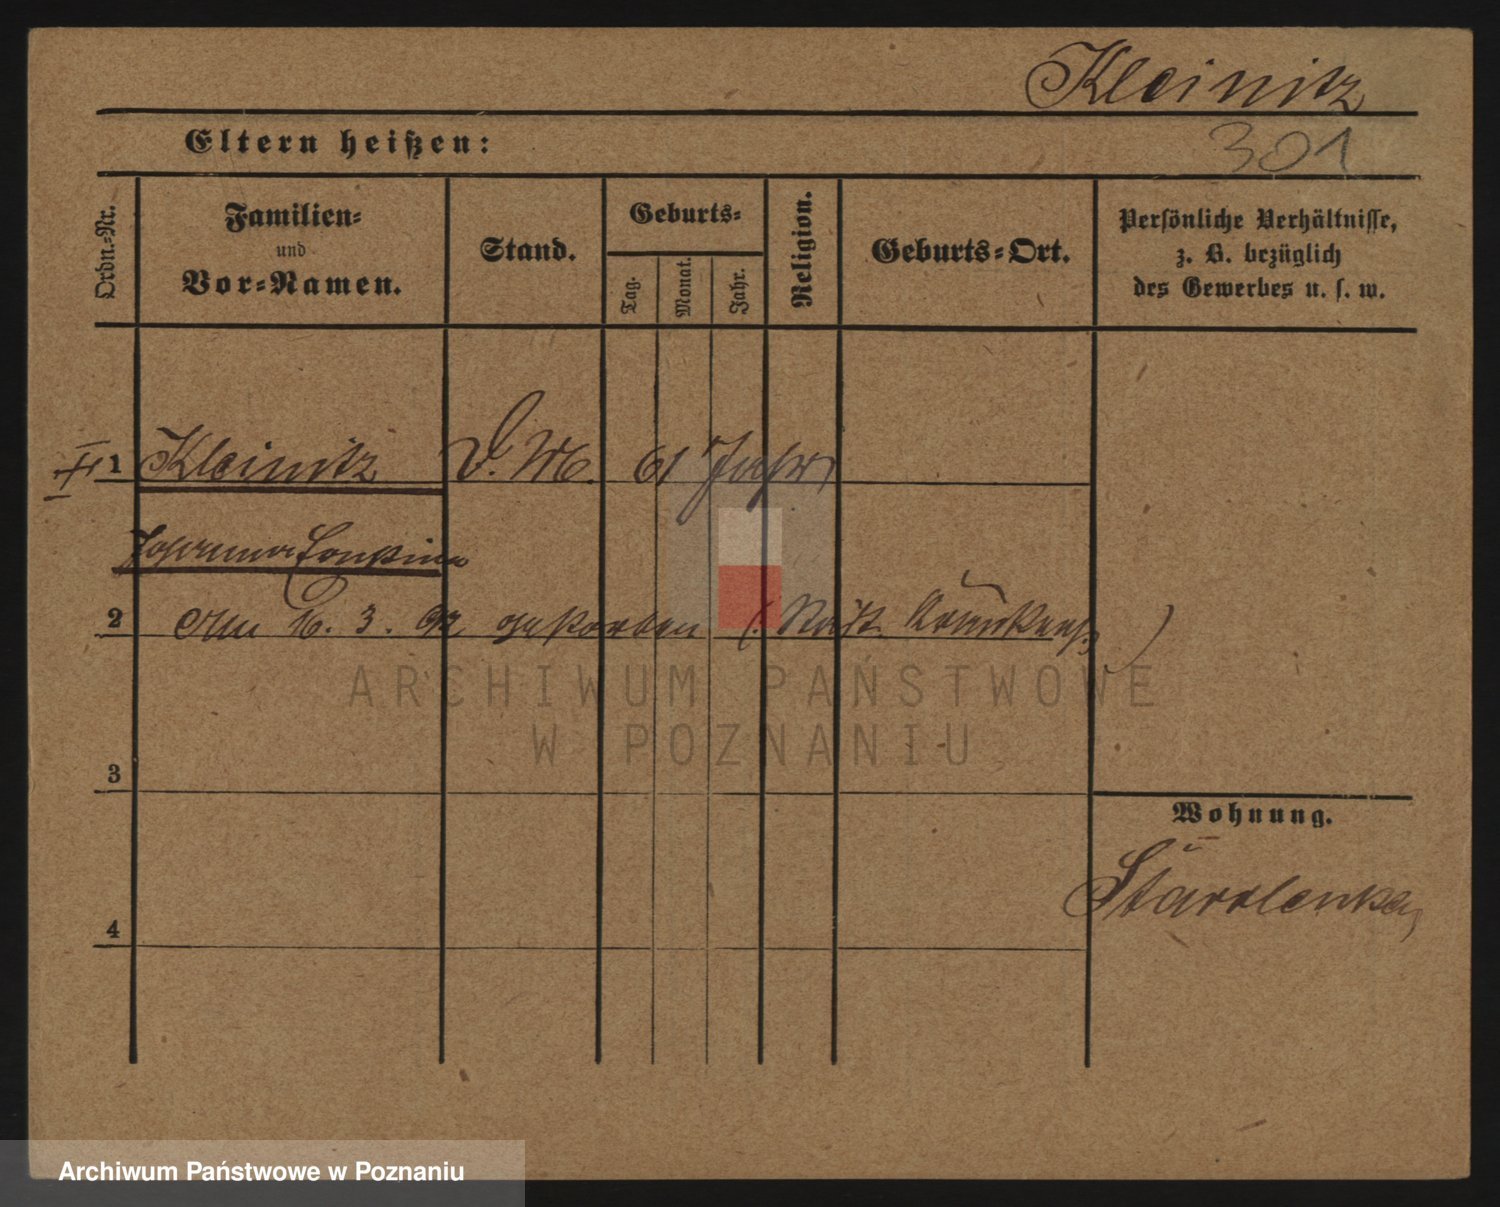 Kleinitz
Eltern heißen:
301
Ordn.-Nr.
Familien-
und
Vor-Namen.
Stand.
Geburts-
Tag.
Monat.
Jahr.
Religion.
Geburts-Ort.
Persönliche Verhältnisse,
z. B. bezüglich
des Gewerbes u. s. w.
1 Kleinitz 61 Jahr
Johanna
2 am 16. 3. 92 gestorben (: Stadt. Krankenh.)
ARCHIWUM PAŃSTWOWE
W POZNANIU
3
Wohnung.
4
Archiwum Państwowe w Poznaniu